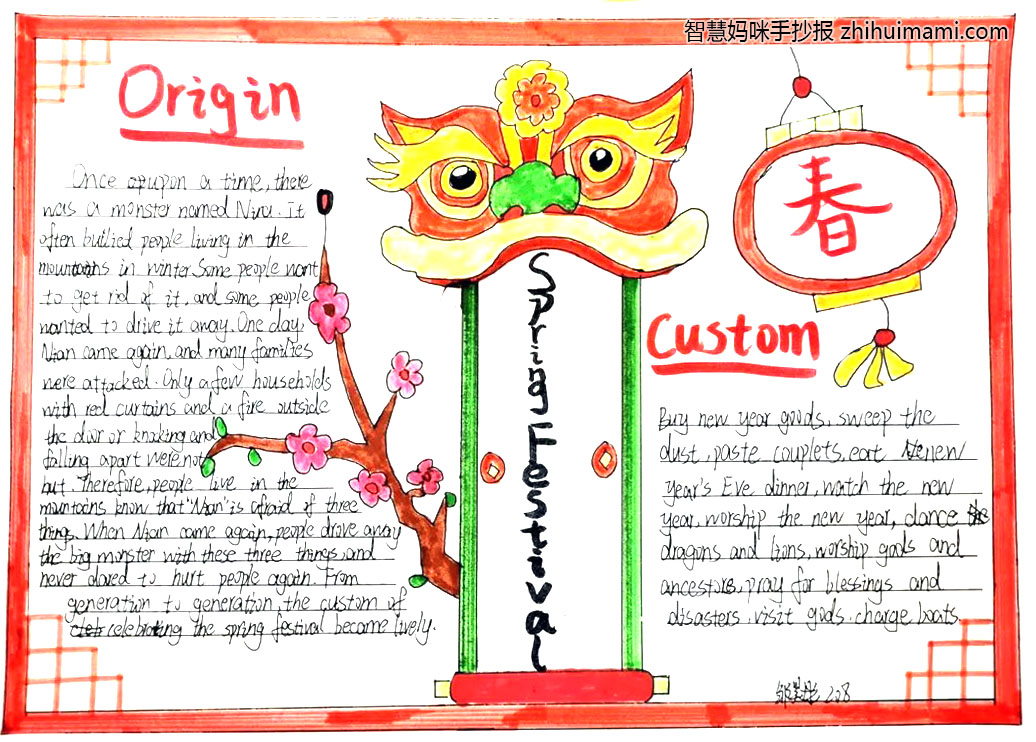 智慧妈咪手抄报 zhihuimami.com
Origin
Once upupon a time, there
was a monster named Nian. It
often bullied people living in the
mountains in winter. Some people want
to get rid of it, and some people
wanted to drive it away. One day,
Nian came again, and many families
were attacked. Only a few households
with red curtains and a fire outside
the door or knoking and
falling apart were not
but. Therefore, people live in the
mountains know that "Nian" is afraid of three
things. When Nian came again, people drove away
the big monster with these three things, and
never dared to hurt people again. From
generation to generation, the custom of
celebrating the spring festival become lively.
Spring Festival
春
Custom
Buy new year goods, sweep the
dust, paste couplets, eat new
year's Eve dinner, watch the new
year, worship the new year, dance
dragons and lions, worship gods and
ancestors, pray for blessings and
disasters, visit gods, charge boats.
208